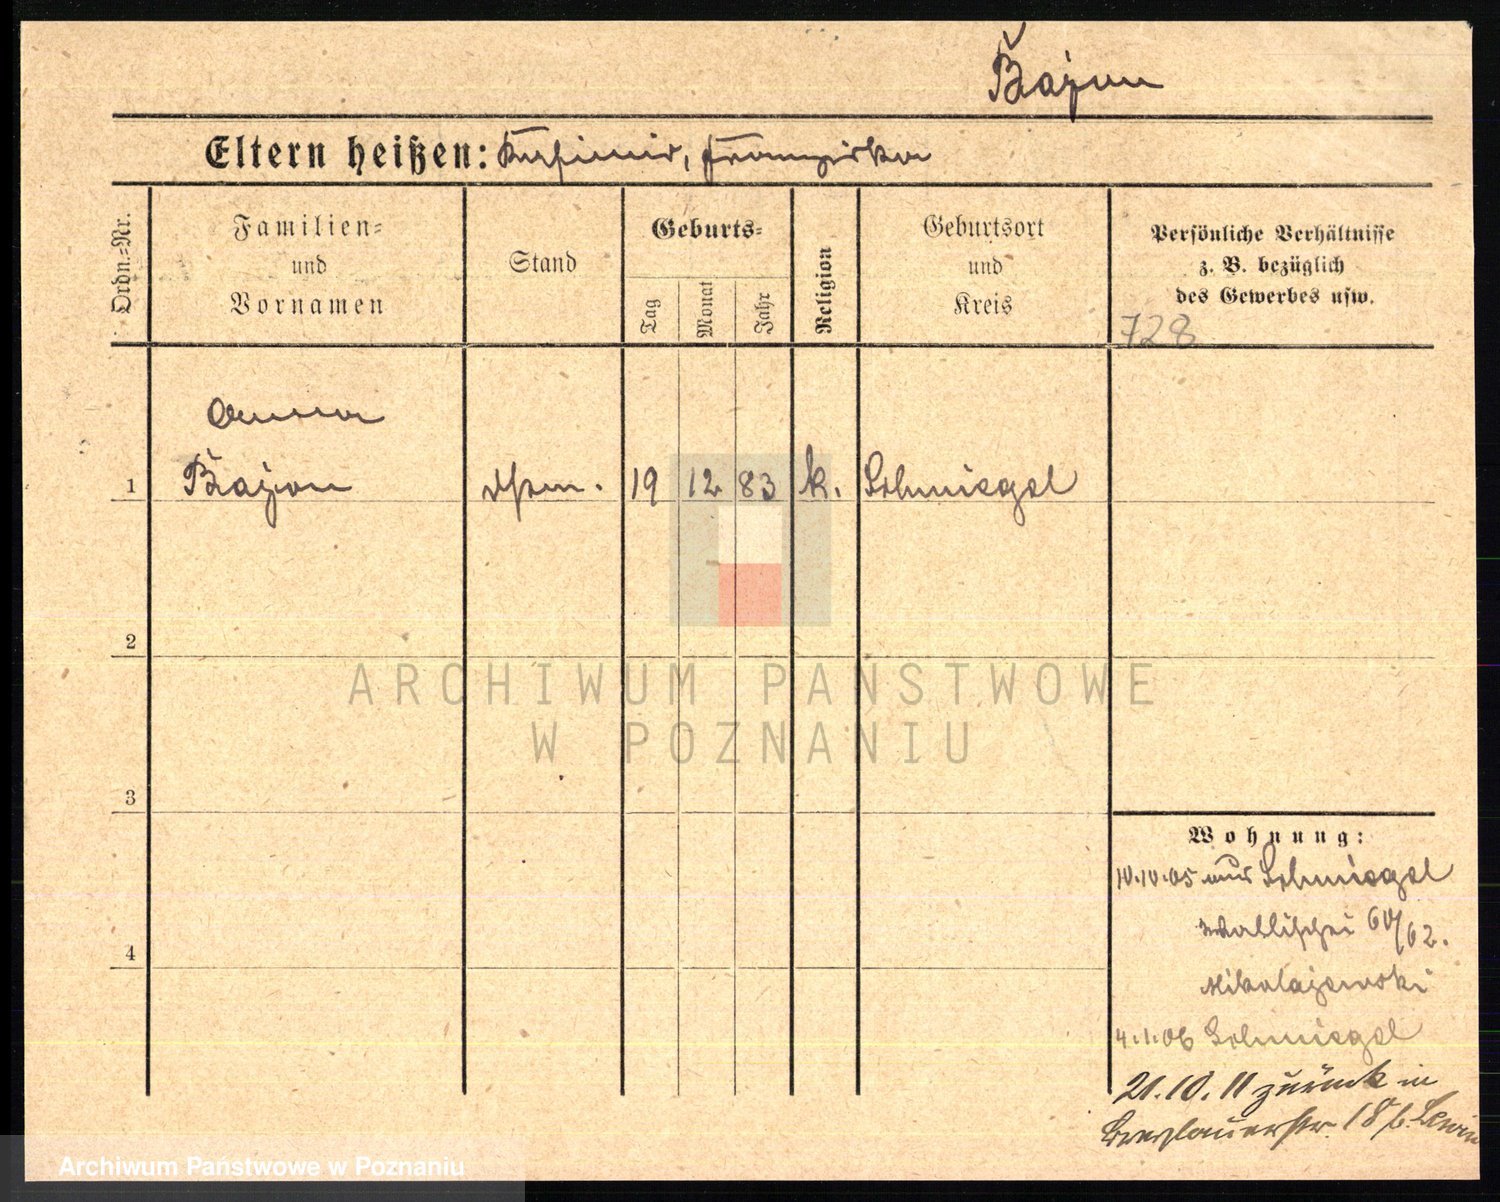 Bajon
Eltern heißen: Kasimir, Franziska
Ordn.-Nr.
Familien-
und
Vornamen
Stand
Geburts-
Tag
Monat
Jahr
Religion
Geburtsort
und
Kreis
Persönliche Verhältnisse
z. B. bezüglich
des Gewerbes usw.
728
Anna
1 Bajon 19 12 83 k. Schmiegel
2
3
4
ARCHIWUM PAŃSTWOWE
W POZNANIU
Wohnung:
10.10.05 aus Schmiegel
Wallischei 60/62.
Mikolajewski
4.1.06 Schmiegel
21.10.11 zurück in
Breslauerstr. 18 b. Lewin
Archiwum Państwowe w Poznaniu